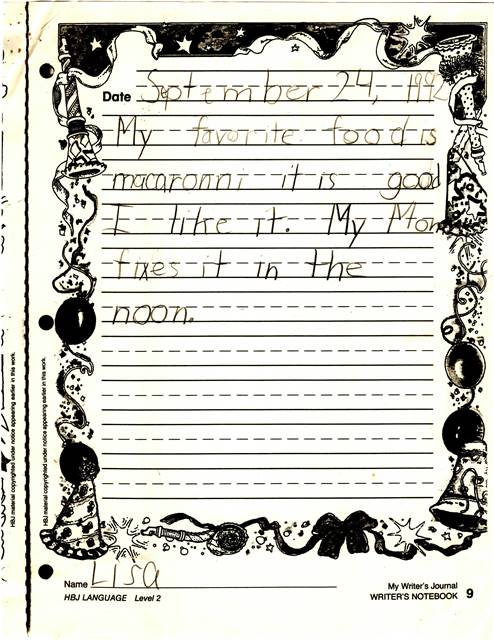 Date September 24, 1992
My favorite food is
macaronni it is good
I like it. My Mom
fixes it in the
noon.
HBJ material copyrighted under notice appearing earlier in this work.
HBJ material copyrighted under notice appearing earlier in this work.
Name Lisa
HBJ LANGUAGE Level 2
My Writer's Journal
WRITER'S NOTEBOOK 9